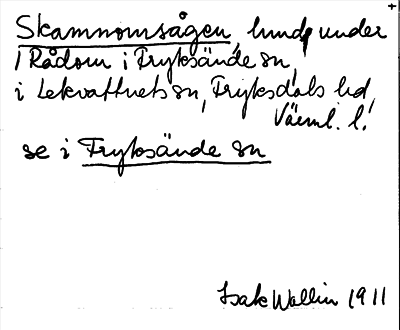 Skamnomsågen, lund under
1 Rådom i Fryksände sn,
i Lekvattnets sn, Fryksdals hd,
Värml. l.
se i Fryksände sn
Isak Wallin 1911